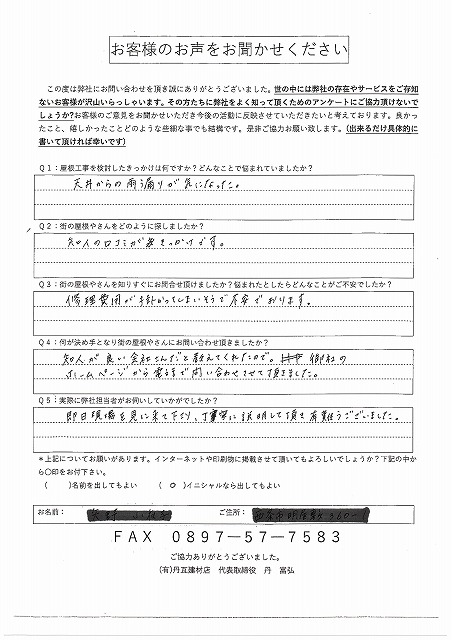 お客様のお声をお聞かせください
この度は弊社にお問い合わせを頂き誠にありがとうございました。世の中には弊社の存在やサービスをご存知
ないお客様が沢山いらっしゃいます。その方たちに弊社をよく知って頂くためのアンケートにご協力頂けないで
しょうか?お客様のご意見をお聞かせいただき今後の活動に反映させていただきたいと考えております。良かっ
たこと、嬉しかったことどのような些細な事でも結構です。是非ご協力お願い致します。(出来るだけ具体的に
書いて頂ければ幸いです)
Q1:屋根工事を検討したきっかけは何ですか?どんなことで悩まれていましたか?
天井からの雨漏りが気になった。
Q2:街の屋根やさんをどのように探しましたか?
知人の口コミがきっかけです。
Q3:街の屋根やさんを知りすぐにお問合せ頂けましたか?悩まれたとしたらどんなことがご不安でしたか?
修理費用が掛かってしまいそうで不安でおります。
Q4:何が決め手となり街の屋根やさんにお問い合わせ頂きましたか?
知人が良い会社さんだと教えてくれたので。御社の
ホームページから電話で問い合わせさせて頂きました。
Q5:実際に弊社担当者がお伺いしていかがでしたか?
即日現場を見に来て下り、丁寧に説明して頂き有難うございました。
*上記についてお願いがあります。インターネットや印刷物に掲載させて頂いてもよろしいでしょうか?下記の中か
ら〇印をお付下さい。
( )名前を出してもよい ( O )イニシャルなら出してもよい
お名前: ご住所:
FAX 0897-57-7583
ご協力ありがとうございました。
(有)丹瓦建材店 代表取締役 丹 富弘